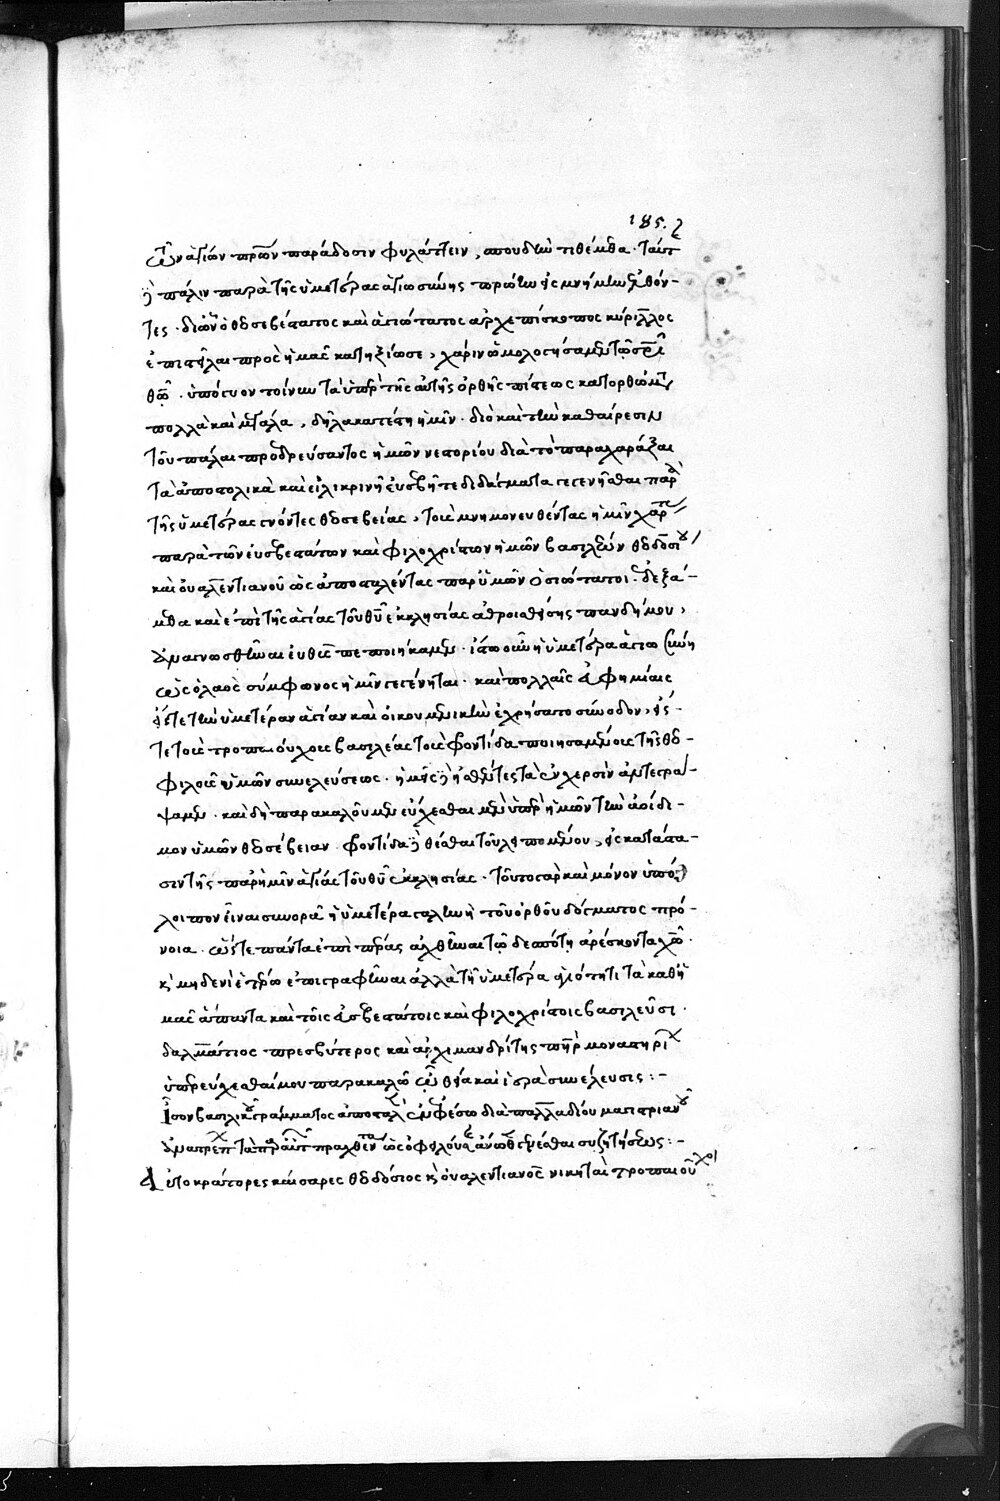 185.
τῶν ἁγίων πρων παράδοσιν φυλάττειν, σπουδὴν τιθέμεθα. ταύτ
πάλιν παρὰ τῆς ὑμετέρας ἁγιωσύνης πρώην εἰς μνήμην ἐλθόν-
τες. δι' ὧν ὁ θεοσεβέστατος καὶ ἁγιώτατος ἀρχιεπίσκοπος κύριλλος
ἐπιστεῖλαι πρὸς ἡμᾶς κατηξίωσε, χάριν ὡμολογήσαμεν τῷ σρι
θῷ. ὑπόγυον τοίνυν τὰ ὑπὲρ τῆς αὐτῆς ὀρθῆς πίστεως κατορθώμτ
πολλὰ καὶ μεγάλα, δῆλα κατέστη ἡμῖν. διὸ καὶ τὴν καθαίρεσιν
τοῦ πάλαι προεδρεύσαντος ἡμῶν νεστορίου διὰ τὸ παραχαράξαι
τὰ ἀποστολικὰ καὶ εἰλικρινῆ εὐσεβῆ τε διδάγματα γεγενῆσθαι παρ
τῆς ὑμετέρας γνόντες θεοσεβείας, τοὺς μνημονευθέντας ἡμῖν χάρτ
παρὰ τῶν εὐσεβεστάτων καὶ φιλοχρίστων ἡμῶν βασιλέων θεοδοσίου
καὶ οὐαλεντιανοῦ ὡς ἀποσταλέντας παρ' ὑμῶν ὁσιώτατοι. δεξά-
μεθα καὶ ἐπὶ τῆς ἁγίας τοῦ θῦ ἐκκλησίας ἀθροισθείσης πανδήμου,
ἀναγνωσθῆναι εὐθὺς πεποιήκαμεν. ἴστω οὖν ἡ ὑμετέρα ἁγιωσύνη
ὡς ὁ λαὸς σύμφωνος ἡμῖν γεγένηται. καὶ πολλαῖς εὐφημίαις
εἴς τε τὴν ὑμετέραν ἁγίαν καὶ οἰκουμενικὴν ἐχρήσατο σύνοδον, εἴς
τε τοὺς τροπαιούχους βασιλέας τοὺς φροντίδα ποιησαμένους τῆς θεο-
φιλοῦς ὑμῶν συνελεύσεως. ἡμεῖς ἡσθέντες τὰ ἐν χερσὶν ἀντεγρά-
ψαμεν. καὶ δὴ παρακαλοῦμεν εὔχεσθαι μὲν ὑπὲρ ἡμῶν τὴν ἀοίδι-
μον ὑμῶν θεοσέβειαν. φροντίδα θέσθαι τοῦ λειπομένου, εἰς κατάστα-
σιν τῆς παρ' ἡμῖν ἁγίας τοῦ θῦ ἐκκλησίας. τοῦτο γὰρ καὶ μόνον ὑπό-
λοιπον εἶναι συνορᾷ ἡ ὑμετέρα γαληνὴ τοῦ ὀρθοῦ δόγματος πρό-
νοια. ὥστε πάντα ἐπὶ πέρας ἀχθῆναι τῷ δεσπότῃ ἀρέσκοντα χῷ.
κ μηδενὶ ἑτέρῳ ἐπιτραφῆναι ἀλλὰ τῇ ὑμετέρα ὁσιότητι τὰ καθ' ἡ
μᾶς ἅπαντα καὶ τοῖς εὐσεβεστάτοις καὶ φιλοχρίστοις βασιλεῦσι.
δαλμάτιος πρεσβύτερος καὶ ἀρχιμανδρίτης πηρ μοναστηρί
ὑπερεύχεσθαί μου παρακαλῶ θεία καὶ ἱερὰ συνέλευσις:-
Ἶσον βασιλικ γράμματος ἀποσταλ ἐν ἐφέσῳ διὰ παλλαδίου μαγιστριανοῦ
Αὐτοκράτορες καίσαρες θεοδόσιος κ οὐαλεντιανὸς νικηταὶ τροπαιοῦχοι